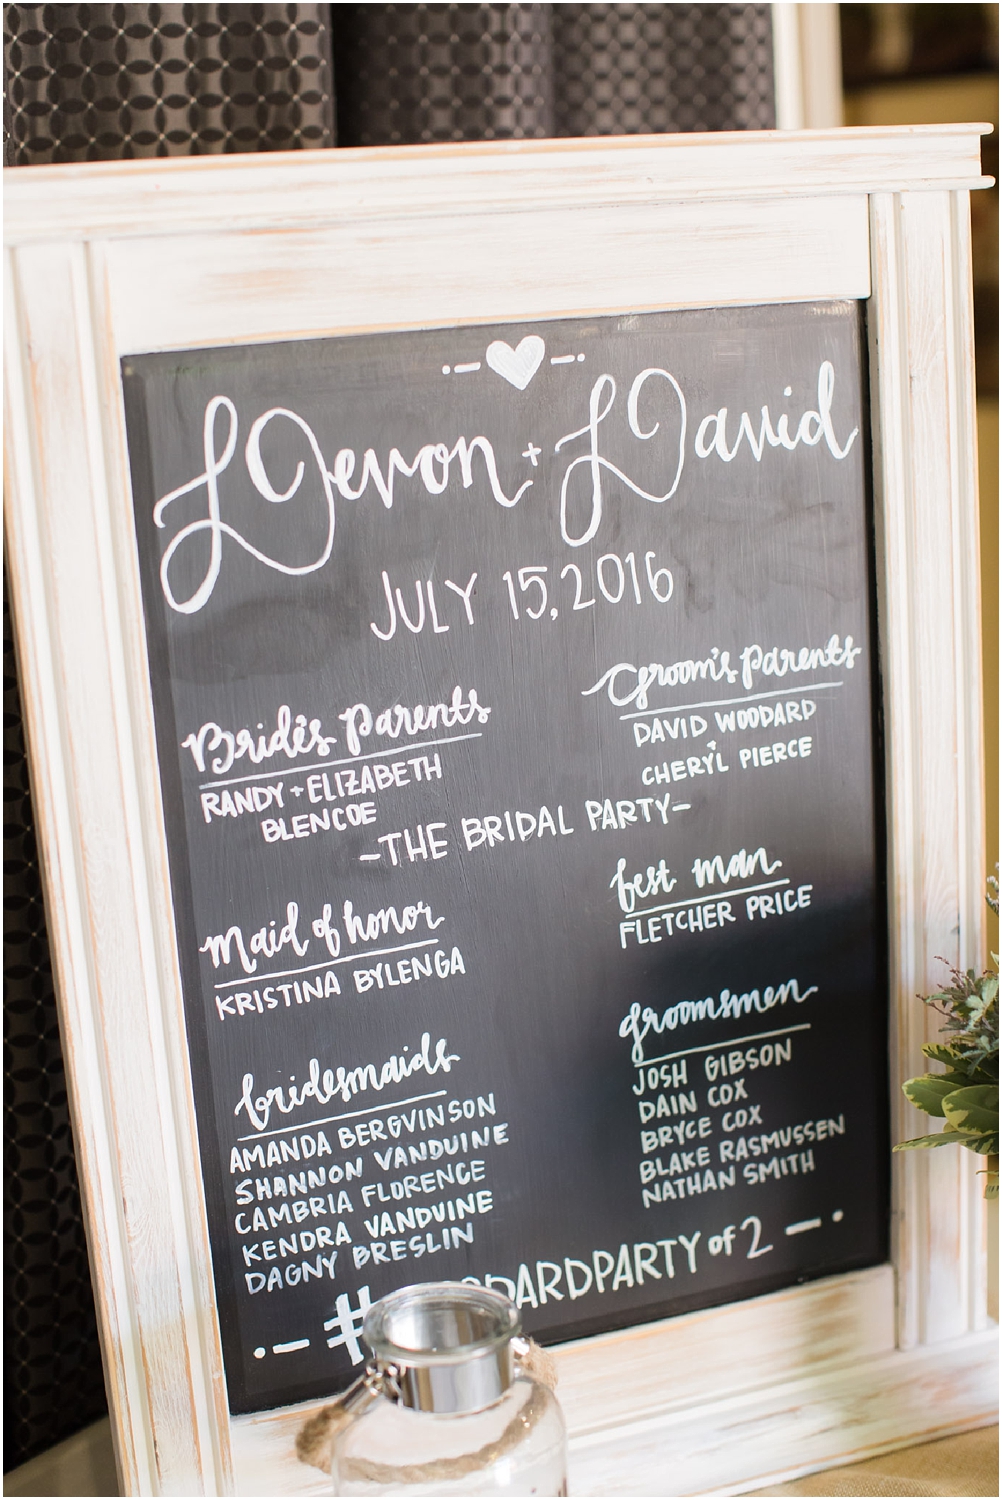 Devon + David
JULY 15, 2016
Bride's Parents
RANDY + ELIZABETH
BLENCOE
Groom's Parents
DAVID WOODARD
+
CHERYL PIERCE
-THE BRIDAL PARTY-
maid of honor
KRISTINA BYLENGA
best man
FLETCHER PRICE
bridesmaids
AMANDA BERGVINSON
SHANNON VANDUINE
CAMBRIA FLORENCE
KENDRA VANDUINE
DAGNY BRESLIN
groomsmen
JOSH GIBSON
DAIN COX
BRYCE COX
BLAKE RASMUSSEN
NATHAN SMITH
# DARDPARTY of 2